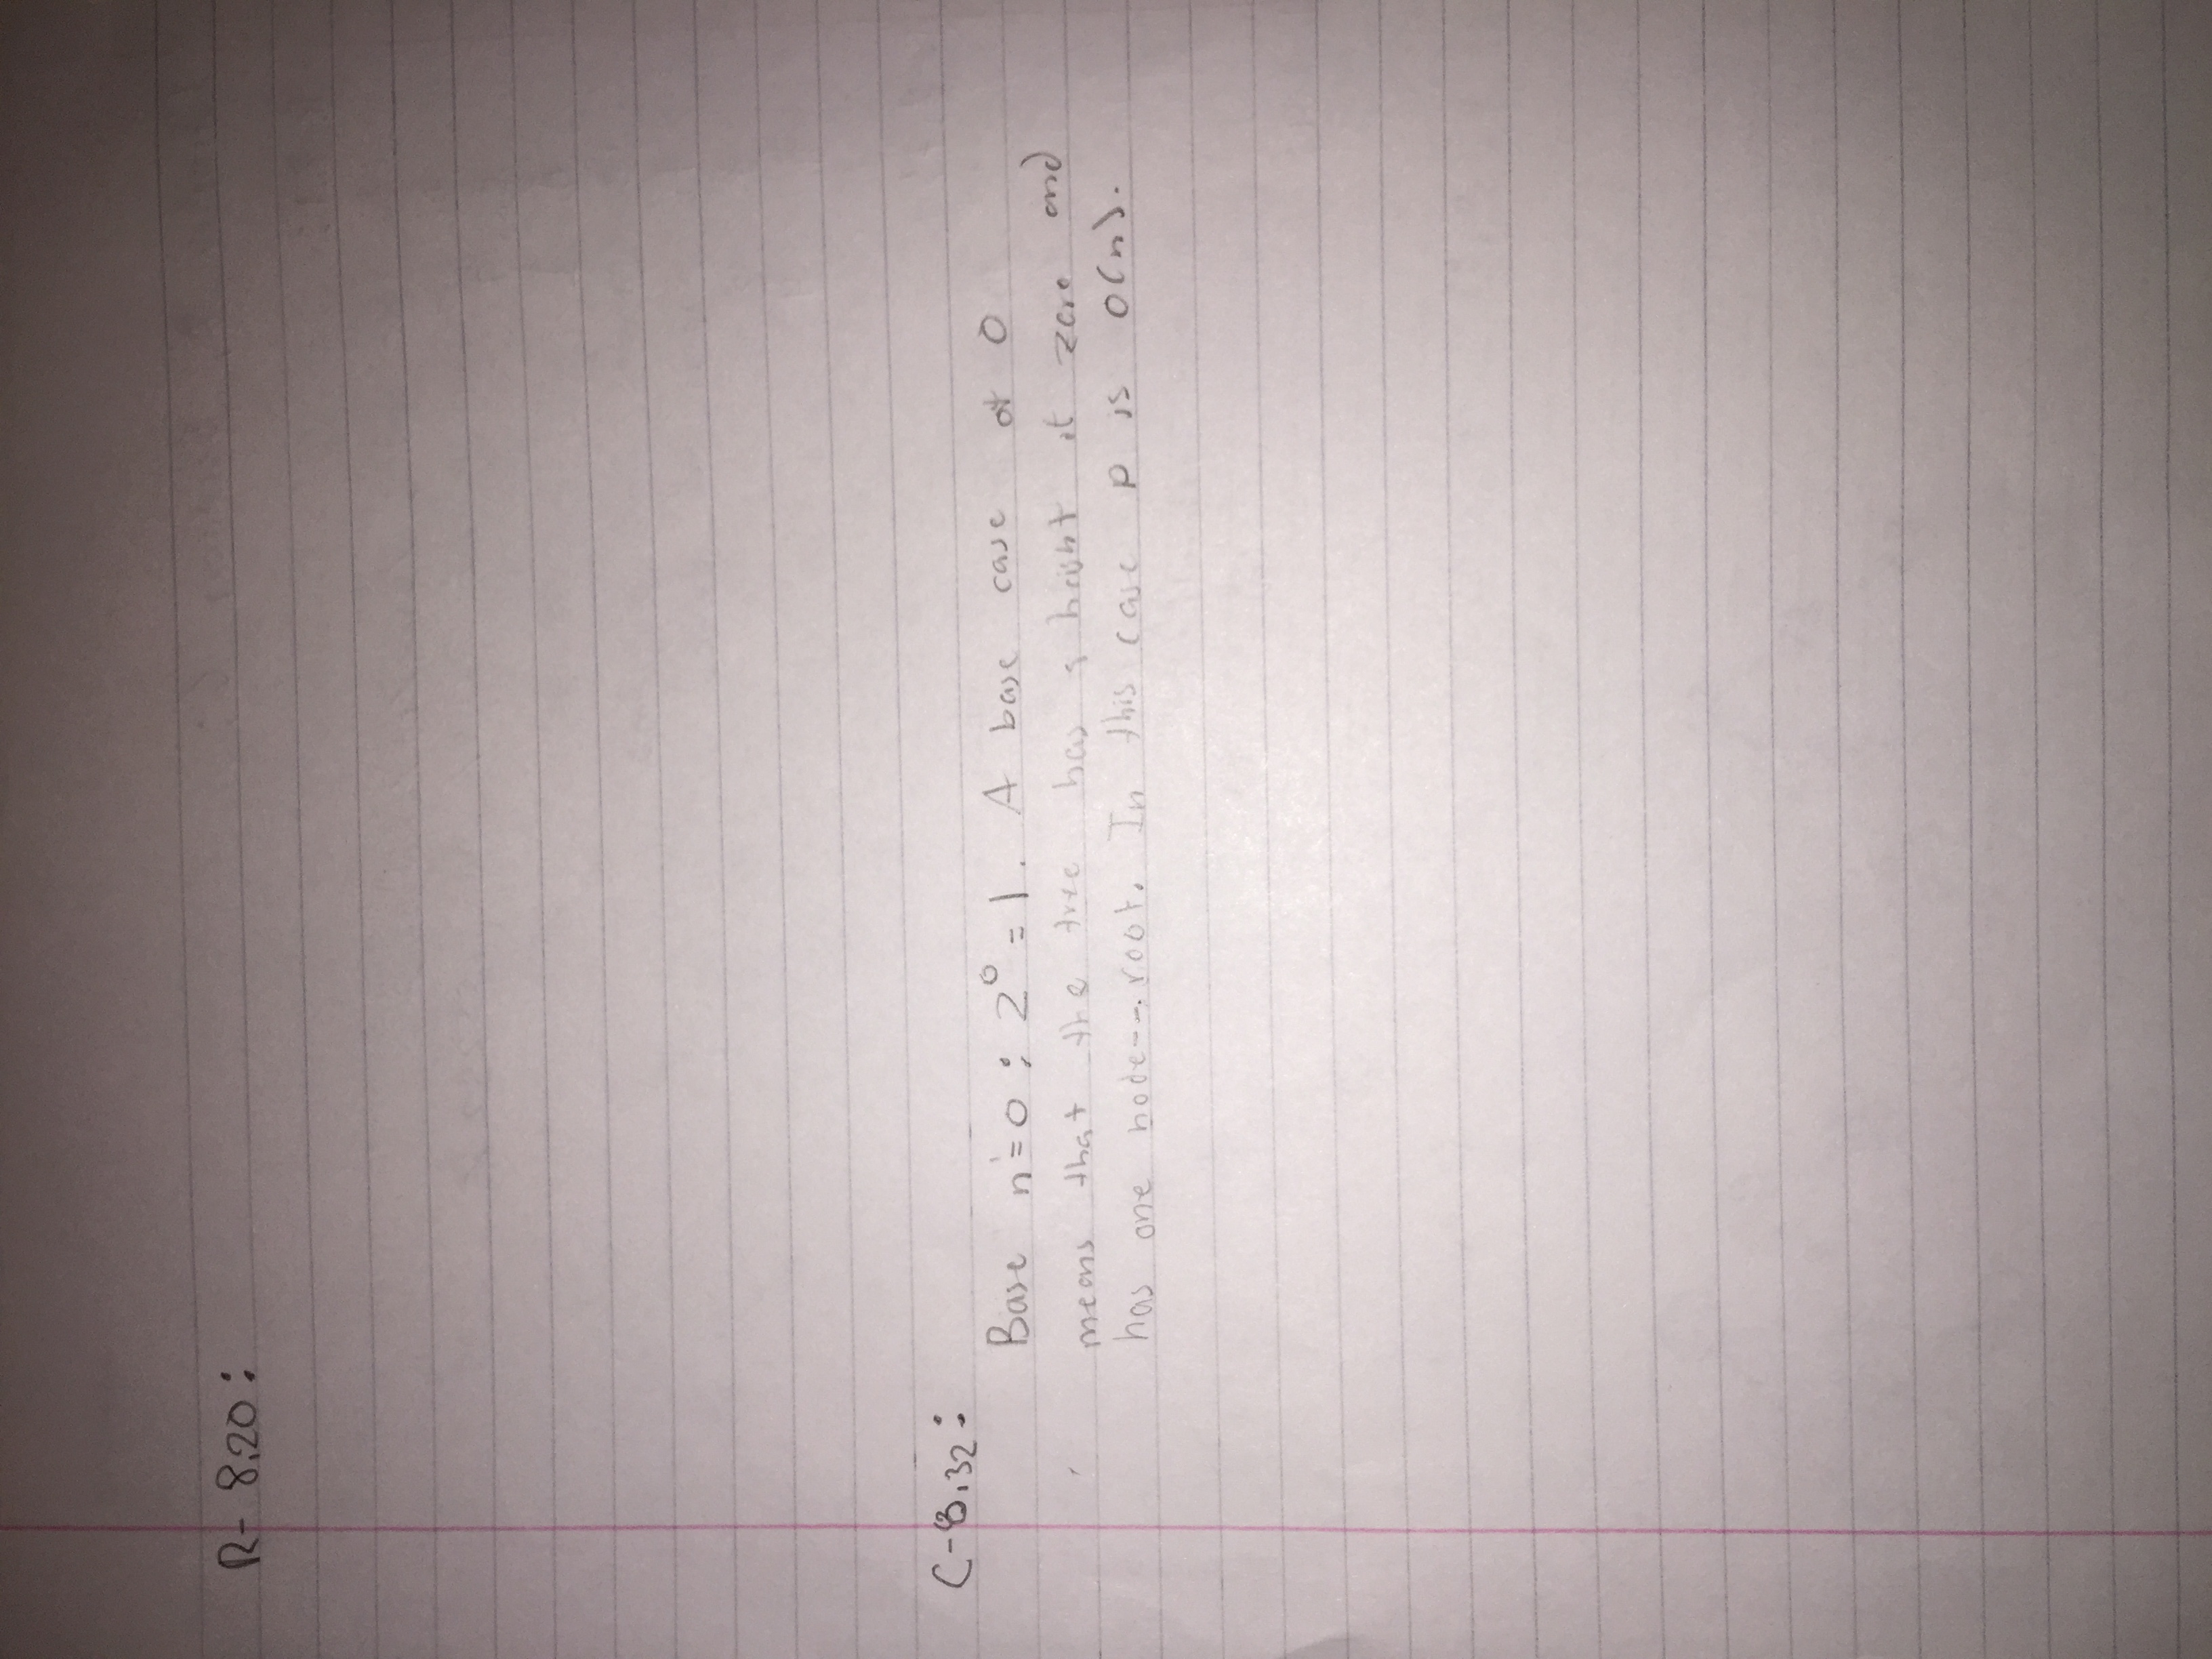 R- 8.20:
C-8.32:
Base n=0: 2⁰ = 1. A base case of 0
means that the tree has a height of zero and
has one node--root. In this case p is O(n).